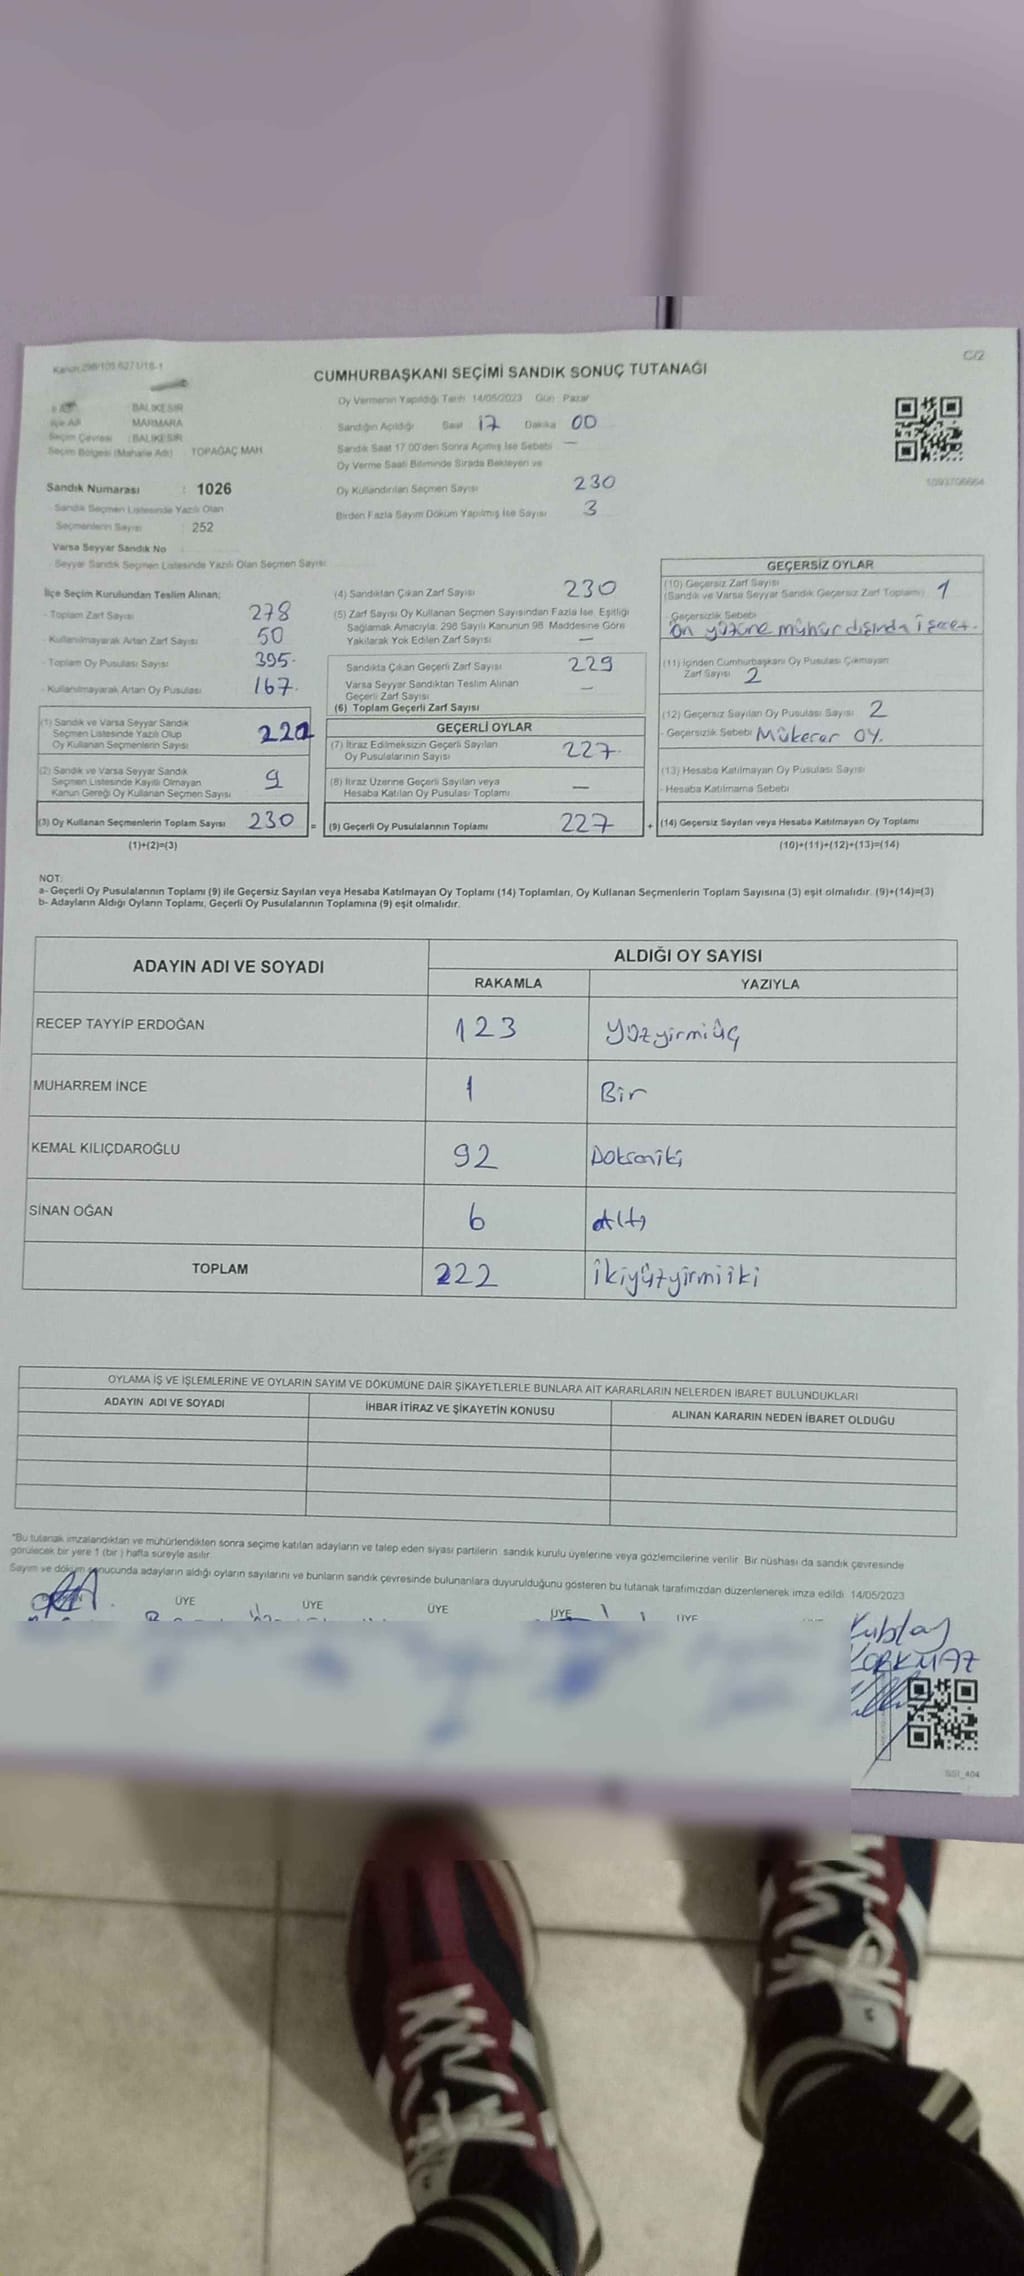 Kanun:298/105 6271/18-1
C/2
CUMHURBAŞKANI SEÇİMİ SANDIK SONUÇ TUTANAĞI
BALIKESİR
İlçe Adı MARMARA
Seçim Çevresi : BALIKESİR
Seçim Bölgesi (Mahalle Adı) TOPAĞAÇ MAH
Sandık Numarası : 1026
- Sandık Seçmen Listesinde Yazılı Olan
Seçmenlerin Sayısı : 252
Varsa Seyyar Sandık No
- Seyyar Sandık Seçmen Listesinde Yazılı Olan Seçmen Sayısı
Oy Vermenin Yapıldığı Tarih 14/05/2023 Gün Pazar
Sandığın Açıldığı Saat 17 Dakika 00
Sandık Saat 17 00'den Sonra Açılmış İse Sebebi —
Oy Verme Saati Bitiminde Sırada Bekleyen ve
Oy Kullandırılan Seçmen Sayısı 230
Birden Fazla Sayım Döküm Yapılmış İse Sayısı 3
1093706664
İlçe Seçim Kurulundan Teslim Alınan;
- Toplam Zarf Sayısı 278
- Kullanılmayarak Artan Zarf Sayısı 50
- Toplam Oy Pusulası Sayısı 395.
- Kullanılmayarak Artan Oy Pusulası 167.
(1) Sandık ve Varsa Seyyar Sandık
Seçmen Listesinde Yazılı Olup
Oy Kullanan Seçmenlerin Sayısı
(2) Sandık ve Varsa Seyyar Sandık
Seçmen Listesinde Kayıtlı Olmayan
Kanun Gereği Oy Kullanan Seçmen Sayısı 9
(3) Oy Kullanan Seçmenlerin Toplam Sayısı 230 =
(1)+(2)=(3)
(4) Sandıktan Çıkan Zarf Sayısı 230
(5) Zarf Sayısı Oy Kullanan Seçmen Sayısından Fazla İse, Eşitliği
Sağlamak Amacıyla, 298 Sayılı Kanunun 98. Maddesine Göre
Yakılarak Yok Edilen Zarf Sayısı —
Sandıkta Çıkan Geçerli Zarf Sayısı 229
Varsa Seyyar Sandıktan Teslim Alınan
Geçerli Zarf Sayısı —
(6) Toplam Geçerli Zarf Sayısı
GEÇERLİ OYLAR
(7) İtiraz Edilmeksizin Geçerli Sayılan
Oy Pusulalarının Sayısı 227.
(8) İtiraz Üzerine Geçerli Sayılan veya
Hesaba Katılan Oy Pusulası Toplamı —
(9) Geçerli Oy Pusulalarının Toplamı 227 +
GEÇERSİZ OYLAR
(10) Geçersiz Zarf Sayısı 1
(Sandık ve Varsa Seyyar Sandık Geçersiz Zarf Toplamı)
- Geçersizlik Sebebi
Ön yüzüne mühür dışında işaret.
(11) İçinden Cumhurbaşkanı Oy Pusulası Çıkmayan
Zarf Sayısı 2
(12) Geçersiz Sayılan Oy Pusulası Sayısı 2
- Geçersizlik Sebebi Mükerer oy.
(13) Hesaba Katılmayan Oy Pusulası Sayısı
- Hesaba Katılmama Sebebi
(14) Geçersiz Sayılan veya Hesaba Katılmayan Oy Toplamı
(10)+(11)+(12)+(13)=(14)
NOT:
a- Geçerli Oy Pusulalarının Toplamı (9) ile Geçersiz Sayılan veya Hesaba Katılmayan Oy Toplamı (14) Toplamları, Oy Kullanan Seçmenlerin Toplam Sayısına (3) eşit olmalıdır. (9)+(14)=(3)
b- Adayların Aldığı Oyların Toplamı, Geçerli Oy Pusulalarının Toplamına (9) eşit olmalıdır.
ADAYIN ADI VE SOYADI ALDIĞI OY SAYISI
RAKAMLA YAZIYLA
RECEP TAYYİP ERDOĞAN 123 Yüzyirmiüç
MUHARREM İNCE 1 Bir
KEMAL KILIÇDAROĞLU 92 Doksaniki
SİNAN OĞAN 6 Altı
TOPLAM 222 İkiyüzyirmiiki
OYLAMA İŞ VE İŞLEMLERİNE VE OYLARIN SAYIM VE DÖKÜMÜNE DAİR ŞİKAYETLERLE BUNLARA AİT KARARLARIN NELERDEN İBARET BULUNDUKLARI
ADAYIN ADI VE SOYADI İHBAR İTİRAZ VE ŞİKAYETİN KONUSU ALINAN KARARIN NEDEN İBARET OLDUĞU
"Bu tutanak imzalandıktan ve mühürlendikten sonra seçime katılan adayların ve talep eden siyasi partilerin sandık kurulu üyelerine veya gözlemcilerine verilir. Bir nüshası da sandık çevresinde
görülecek bir yere 1 (bir) hafta süreyle asılır.
Sayım ve döküm sonucunda adayların aldığı oyların sayılarını ve bunların sandık çevresinde bulunanlara duyurulduğunu gösteren bu tutanak tarafımızdan düzenlenerek imza edildi. 14/05/2023
ÜYE ÜYE ÜYE ÜYE ÜYE
Kublay
KORKMAZ
SSI_404